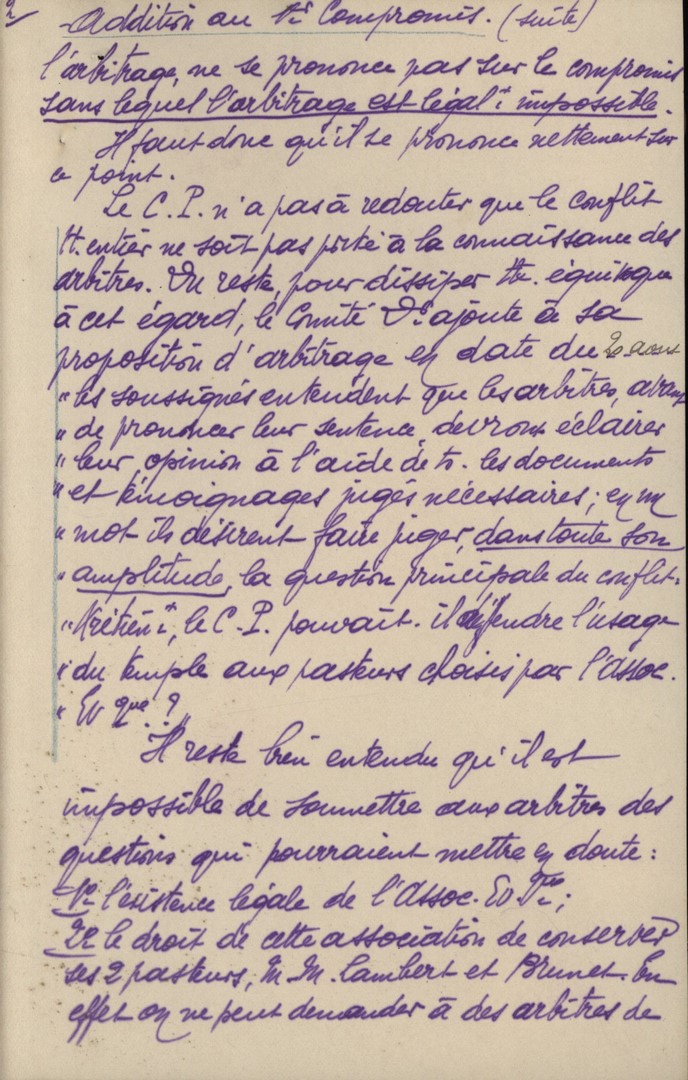 2
Addition au 1er Compromis. (suite)
l'arbitrage, ne se prononce pas sur le compromis
sans lequel l'arbitrage est légalt impossible.
Il faut donc qu'il se prononce nettement sur
ce point.
Le C. P. n'a pas à redouter que le conflit
tt. entier ne soit pas porté à la connaissance des
arbitres. Du reste, pour dissiper tte. équivoque
à cet égard, le Comité Dr ajoute à sa
proposition d'arbitrage en date du 20 aout
" les soussignés entendent que les arbitres, avant
" de prononcer leur sentence, devront éclairer
" leur opinion à l'aide de ts. les documents
" et témoignages jugés nécessaires; en un
" mot ils désirent faire juger, dans toute son
" amplitude, la question principale du conflit:
" le C. P. pouvait-il défendre l'usage
" du temple aux pasteurs choisis par l'Assoc.
" Ev que. ? "
Il reste bien entendu qu'il est
impossible de soumettre aux arbitres des
questions qui pourraient mettre en doute:
1o l'éxistence légale de l'Assoc. Ev. ;
2o le droit de cette association de conserver
ses 2 pasteurs, M. M. Lambert et Brunet. En
effet on ne peut demander à des arbitres de